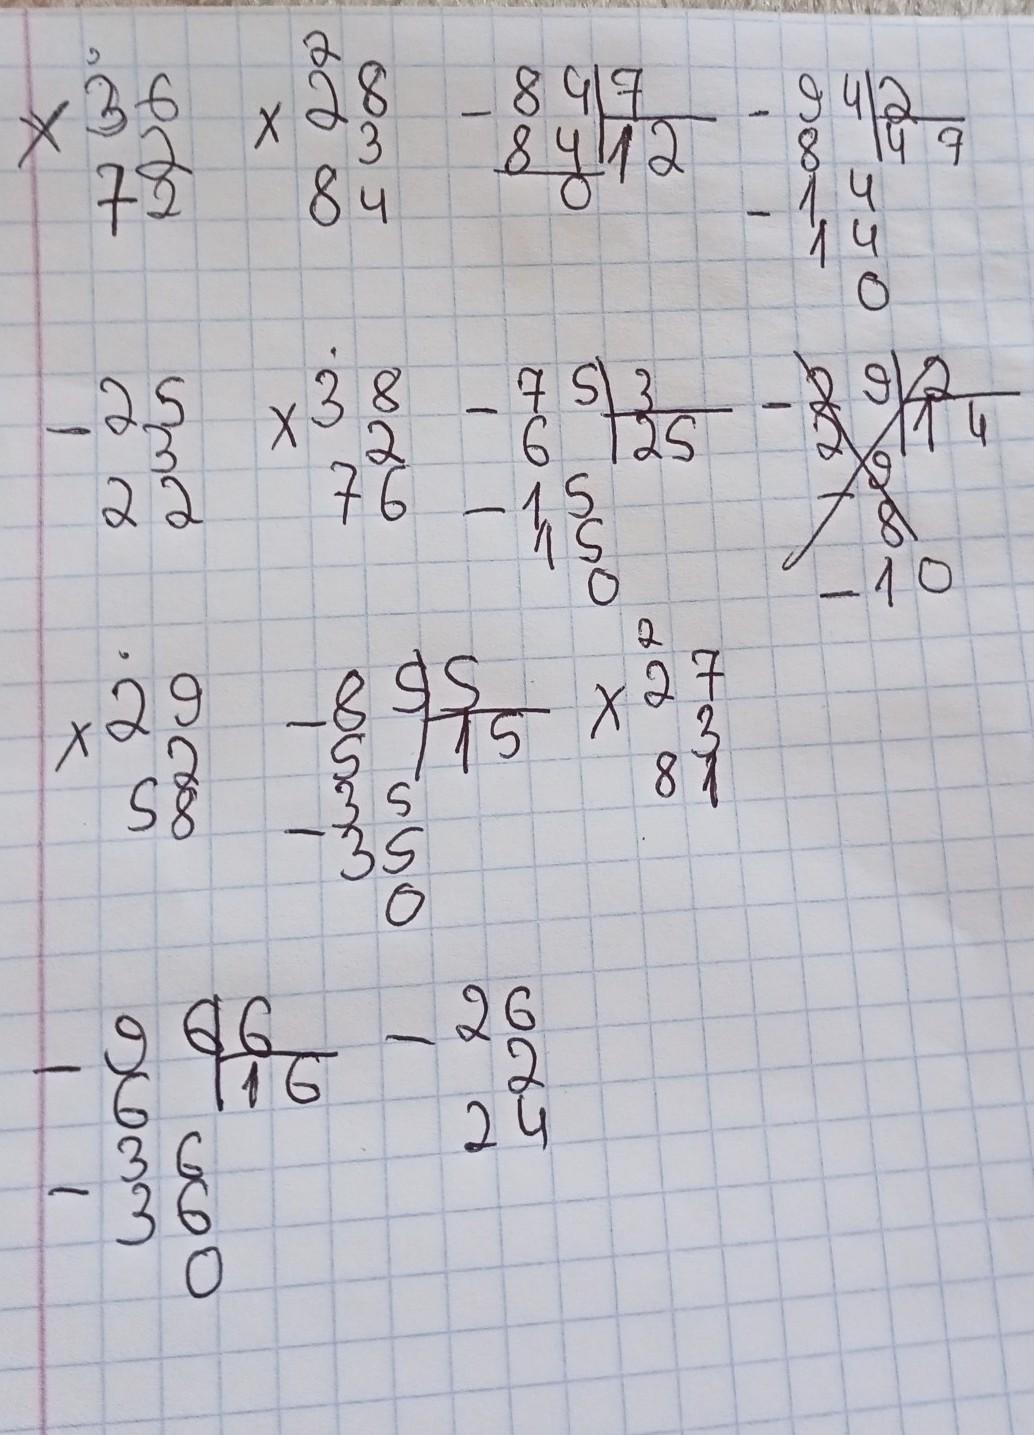 2
× 36 × 28 - 84|7 - 94|2
2 3 84|12 8|47
72 84 0 - 14
14
0
- 25 × 38 - 75|3 - 29|2
3 2 6|25 2|14
22 76 - 15 - 9
15 8
0 - 10
2
× 29 - 85|5 × 27
2 5|15 3
58 - 35 81
35
0
- 96|6 - 26
6|16 2
- 36 24
36
0